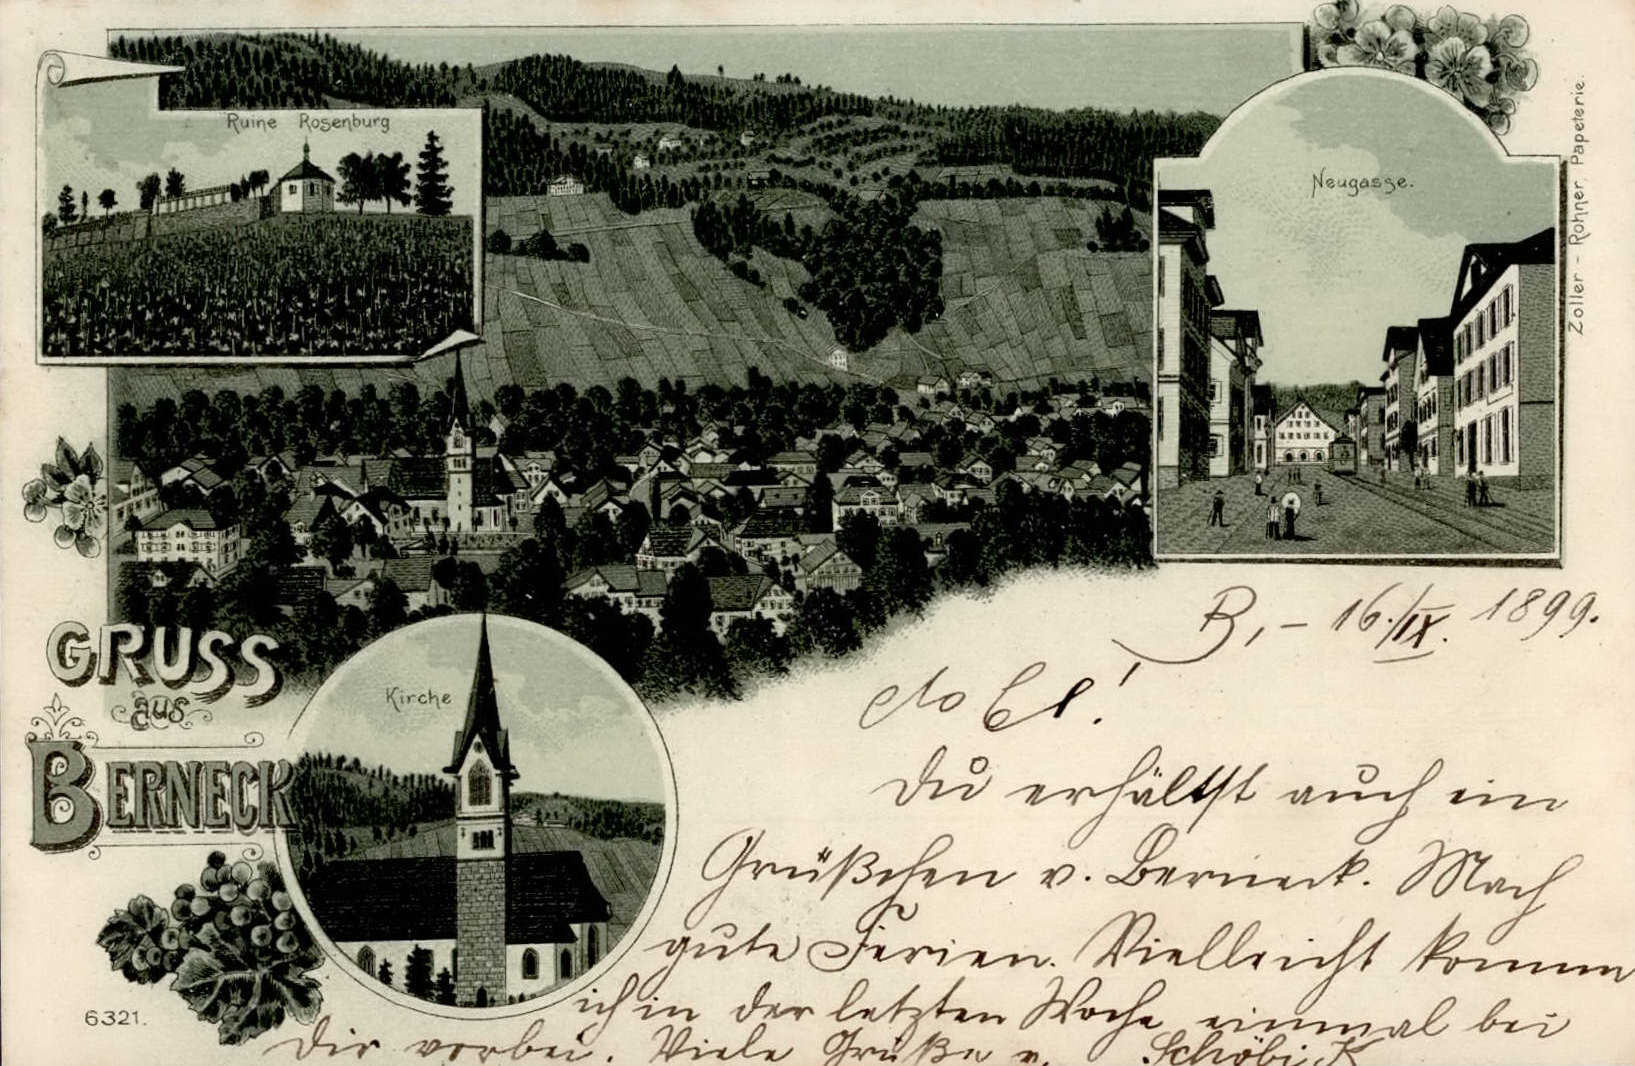 Ruine Rosenburg
Neugasse.
Zoller - Rohner, Papeterie.
GRUSS
aus
BERNECK
Kirche
6321.
B,- 16./IX. 1899.
Du erhältst auch ein
Grüßchen v. Berneck. Mach
gute Ferien. Vielleicht komme
ich in der letzten Woche einmal bei
Dir vorbei. Viele Grüße v.